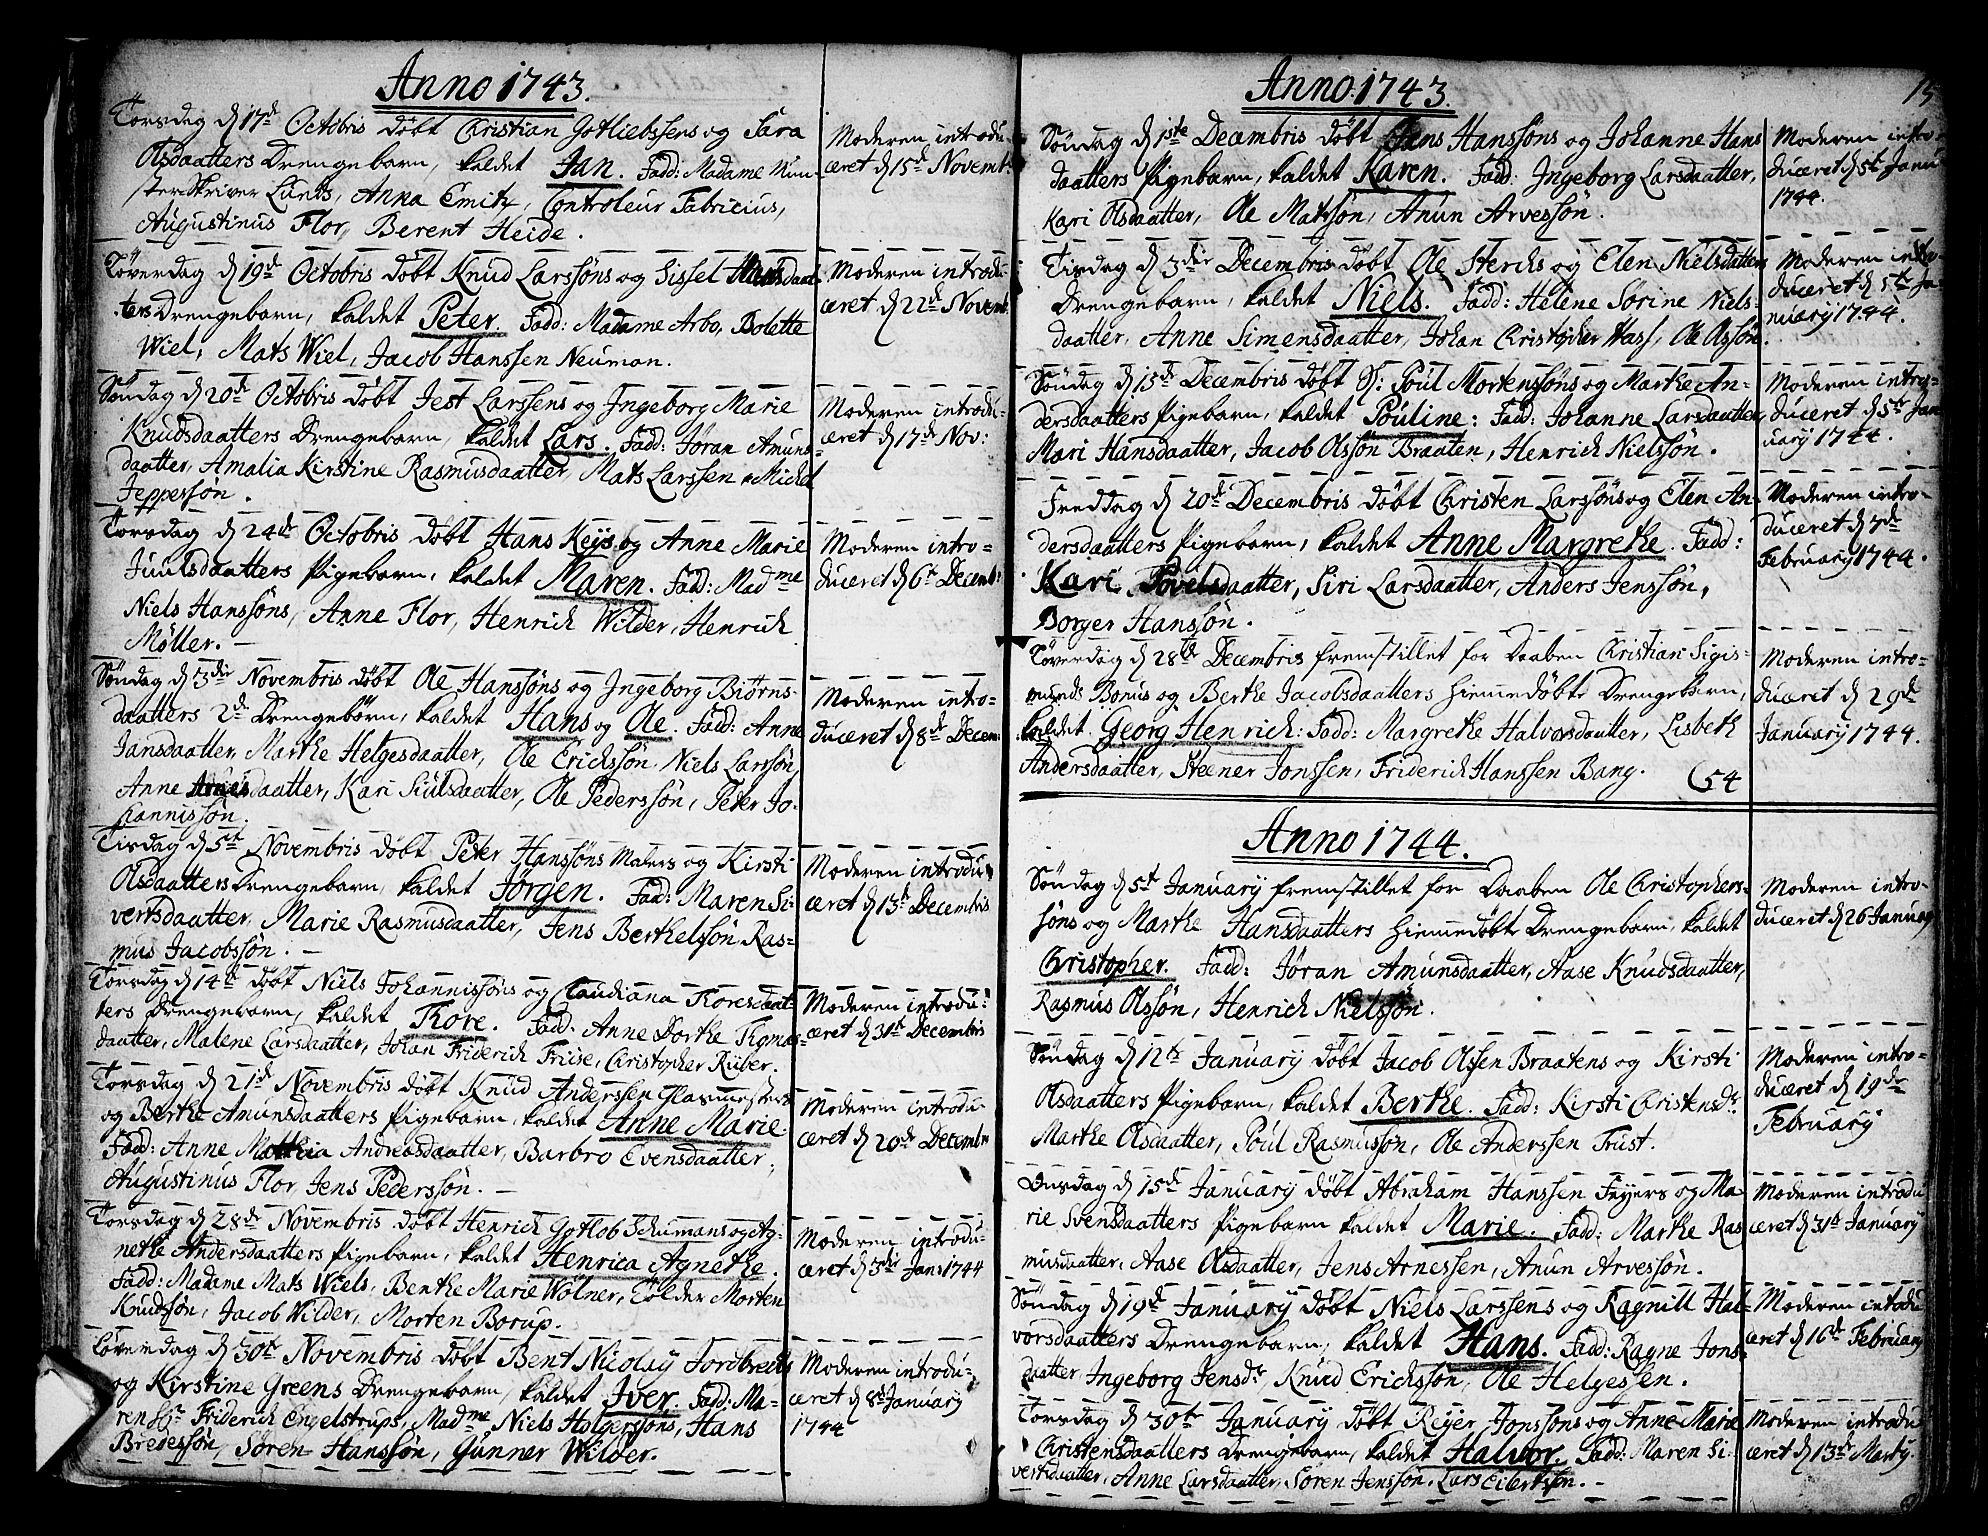 Anno 1743.
Torsdag d 17de Octobris döbt Christian Gotliebssens og Sara
Olsdaatters Drengebarn, kaldet Jan. Fadd: Madame Mün-
sterskriver Lunds, Anna Emitz, Controleur Fabricius,
Augustinus Flor, Berent Heide.
Moderen introdu-
ceret d 15de Novemb:
Löverdag d 19de Octobris döbt Knud Larssöns og Sissel Hansdaat-
ters Drengebarn, kaldet Peter. Fadd: Madame Arbo, Bolette
Wiel, Mats Wiel, Jacob Hanssen Neuman.
Moderen introdu-
ceret d 22de Novemb:
Söndag d 20de Octobris döbt Jest Larssens og Ingeborg Marie
Knudsdaatters Drengebarn, kaldet Lars. Fadd: Jöran Amuns-
daatter, Amalia Kirstine Rasmusdaatter, Mats Larssen, Michel
Jeppessön.
Moderen introdu-
ceret d 17de Nov:
Torsdag d 24de Octobris döbt Hans Keys og Anne Marie
Juulsdaatters Pigebarn, kaldet Maren. Fadd: Madme
Niels Hanssöns, Anne Flor, Henrich Wilder, Henrich
Möller.
Moderen intro-
duceret d 6te Decemb:
Söndag d 3die Novembris döbt Ole Hanssöns og Ingeborg Biörns-
daatters 2de Drengebörn, kaldet Hans og Ole. Fadd: Anne
Jansdaatter, Marthe Helgesdaatter, Ole Erichssön, Niels Larssön,
Anne daatter, Kari Siulsdaatter, Ole Pederssön, Peter Jo-
hannissön.
Moderen intro-
duceret d 8de Decem:
Tirsdag d 5te Novembris döbt Peter Hanssöns Malers og Kirsti
Olsdaatters Drengebarn, kaldet Jörgen. Fadd: Maren Si-
vertsdaatter, Marie Rasmusdaatter, Jens Berthelssön, Ras-
mus Jacobssön.
Moderen introdu-
ceret d 13de Decembris
Torsdag d 14de döbt Niels Johannissöns og Claudiana Thoresdaat-
ters Drengebarn, kaldet Thore. Fadd: Anne Dorthe Thomas-
daatter, Malene Larsdaatter, Johan Friderich Friise, Christopher Rüber.
Moderen introdu-
ceret d 31te Decembris
Torsdag d 21de Novembris döbt Knud Anderssen Glasmesters
og Berthe Amunsdaatters Pigebarn, kaldet Anne Marie.
Fadd: Anne Mathia Andreasdaatter, Barbro Evensdaatter,
Augustinus Flor, Jens Pederssön.
Moderen introdu-
ceret d 20de Decembr
Torsdag d 28de Novembris döbt Henrich Gotlob Schumans og Ag-
nethe Andersdaatters Pigebarn, kaldet Henrica Agnethe.
Fadd: Madame Mats Wiels, Benthe Marie Wölner, Tolder Morten
Knudssön, Jacob Wilder, Morten Borup.
Moderen introdu-
ceret d 3die Jan: 1744
Löverdag d 30te Novembris döbt Bent Nicolay Jordbreks
og Kirstine Greens Drengebarn, kaldet Iver. Fadd: Ma-
ren Sr Friderich Engelstrups, Madme Niels Holgerssöns, Hans
Bredessön, Sören Hanssön, Gunner Wilder.
Moderen introdu-
ceret d 8de January
1744
Anno 1743.
15
Söndag d 1ste Decembris döbt Jens Hanssöns og Johanne Hans
daatters Pigebarn, kaldet Karen. Fadd: Ingeborg Larsdaatter,
Kari Olsdaatter, Ole Matssön, Anun Arvessön.
Moderen intro-
duceret d 5te Janu
1744.
Tisdag d 3die Decembris döbt Ole Stercks og Elen Nielsdatters
Drengebarn, kaldet Niels. Fadd: Helene Sörine Niels-
daatter, Anne Simensdaatter, Johan Christopher Hass, Ole Olssön.
Moderen intro-
duceret d 5te Ja-
nuary 1744.
Söndag d 15de Decembris döbt S: Poul Mortenssöns og Marthe An-
dersdaatters Pigebarn, kaldet Pouline: Fadd: Johanne Larsdaatter,
Mari Hansdaatter, Jacob Olssön Braaten, Henrich Nielssön.
Moderen intro-
duceret d 5te Jan
uary 1744.
Fredtag d 20de Decembris döbt Christen Larssöns og Elen An-
dersdaatters Pigebarn, kaldet Anne Margrethe. Fadd:
Kari Povelsdaatter, Siri Larsdaatter, Anders Jenssön,
Borger Hanssön.
Moderen intro-
duceret d 7de
February 1744.
Löverdag d 28de Decembris fremstillet for Daaben Christian Sigis-
munds Bonus og Berthe Jacobsdaatters hiemmedöbte Drengebarn,
kaldet Georg Henrich: Fadd: Margrethe Halvorsdaatter, Lisbeth
Andersdaatter, Steener Jonssen, Friderich Hanssen Bang. (54
Moderen intro-
duceret d 29de
January 1744.
Anno 1744.
Söndag d 5te January fremstillet for Daaben Ole Christophers-
söns og Marthe Hansdaatters hiemmedöbte Drengebarn, kaldet
Christopher. Fadd: Jöran Amunsdaatter, Aase Knudsdaatter,
Rasmus Olssön, Henrich Nielssön.
Moderen intro-
duceret d 26 January
Söndag d 12te January döbt Jacob Olssen Braatens og Kirsti
Olsdaatters Pigebarn, kaldet Berthe. Fadd: Kirsti Christensdr
Marthe Olsdaatter, Poul Rasmussön, Ole Anderssen Trust.
Moderen intro-
duceret d 19de
February
Onsdag d 15de January döbt Abraham Hanssen Feyers og Ma-
rie Svensdaatters Pigebarn kaldet Marie. Fadd: Marthe Ras
musdaatter, Aase Olsdaatter, Jens Arnessen, Anun Arvessön.
Moderen introdu
ceret d 31te January
Söndag d 19de January döbt Niels Larssens og Ragnill Hal-
vorsdaatters Drengebarn, kaldet Hans. Fadd: Ragne Jons-
daatter, Ingeborg Jensdr Knud Erichssön, Ole Helgessen.
Moderen introdu
ceret d 16de February
Torsdag d 30te January döbt Reyer Jonssöns og Anne Marie
Christensdaatters Drengebarn, kaldet Halvor. Fadd: Maren Si-
vertsdaatter, Anne Larsdaatter, Sören Jenssön, Lars Eilertssön.
Moderen introdu
ceret d 13de Marty.